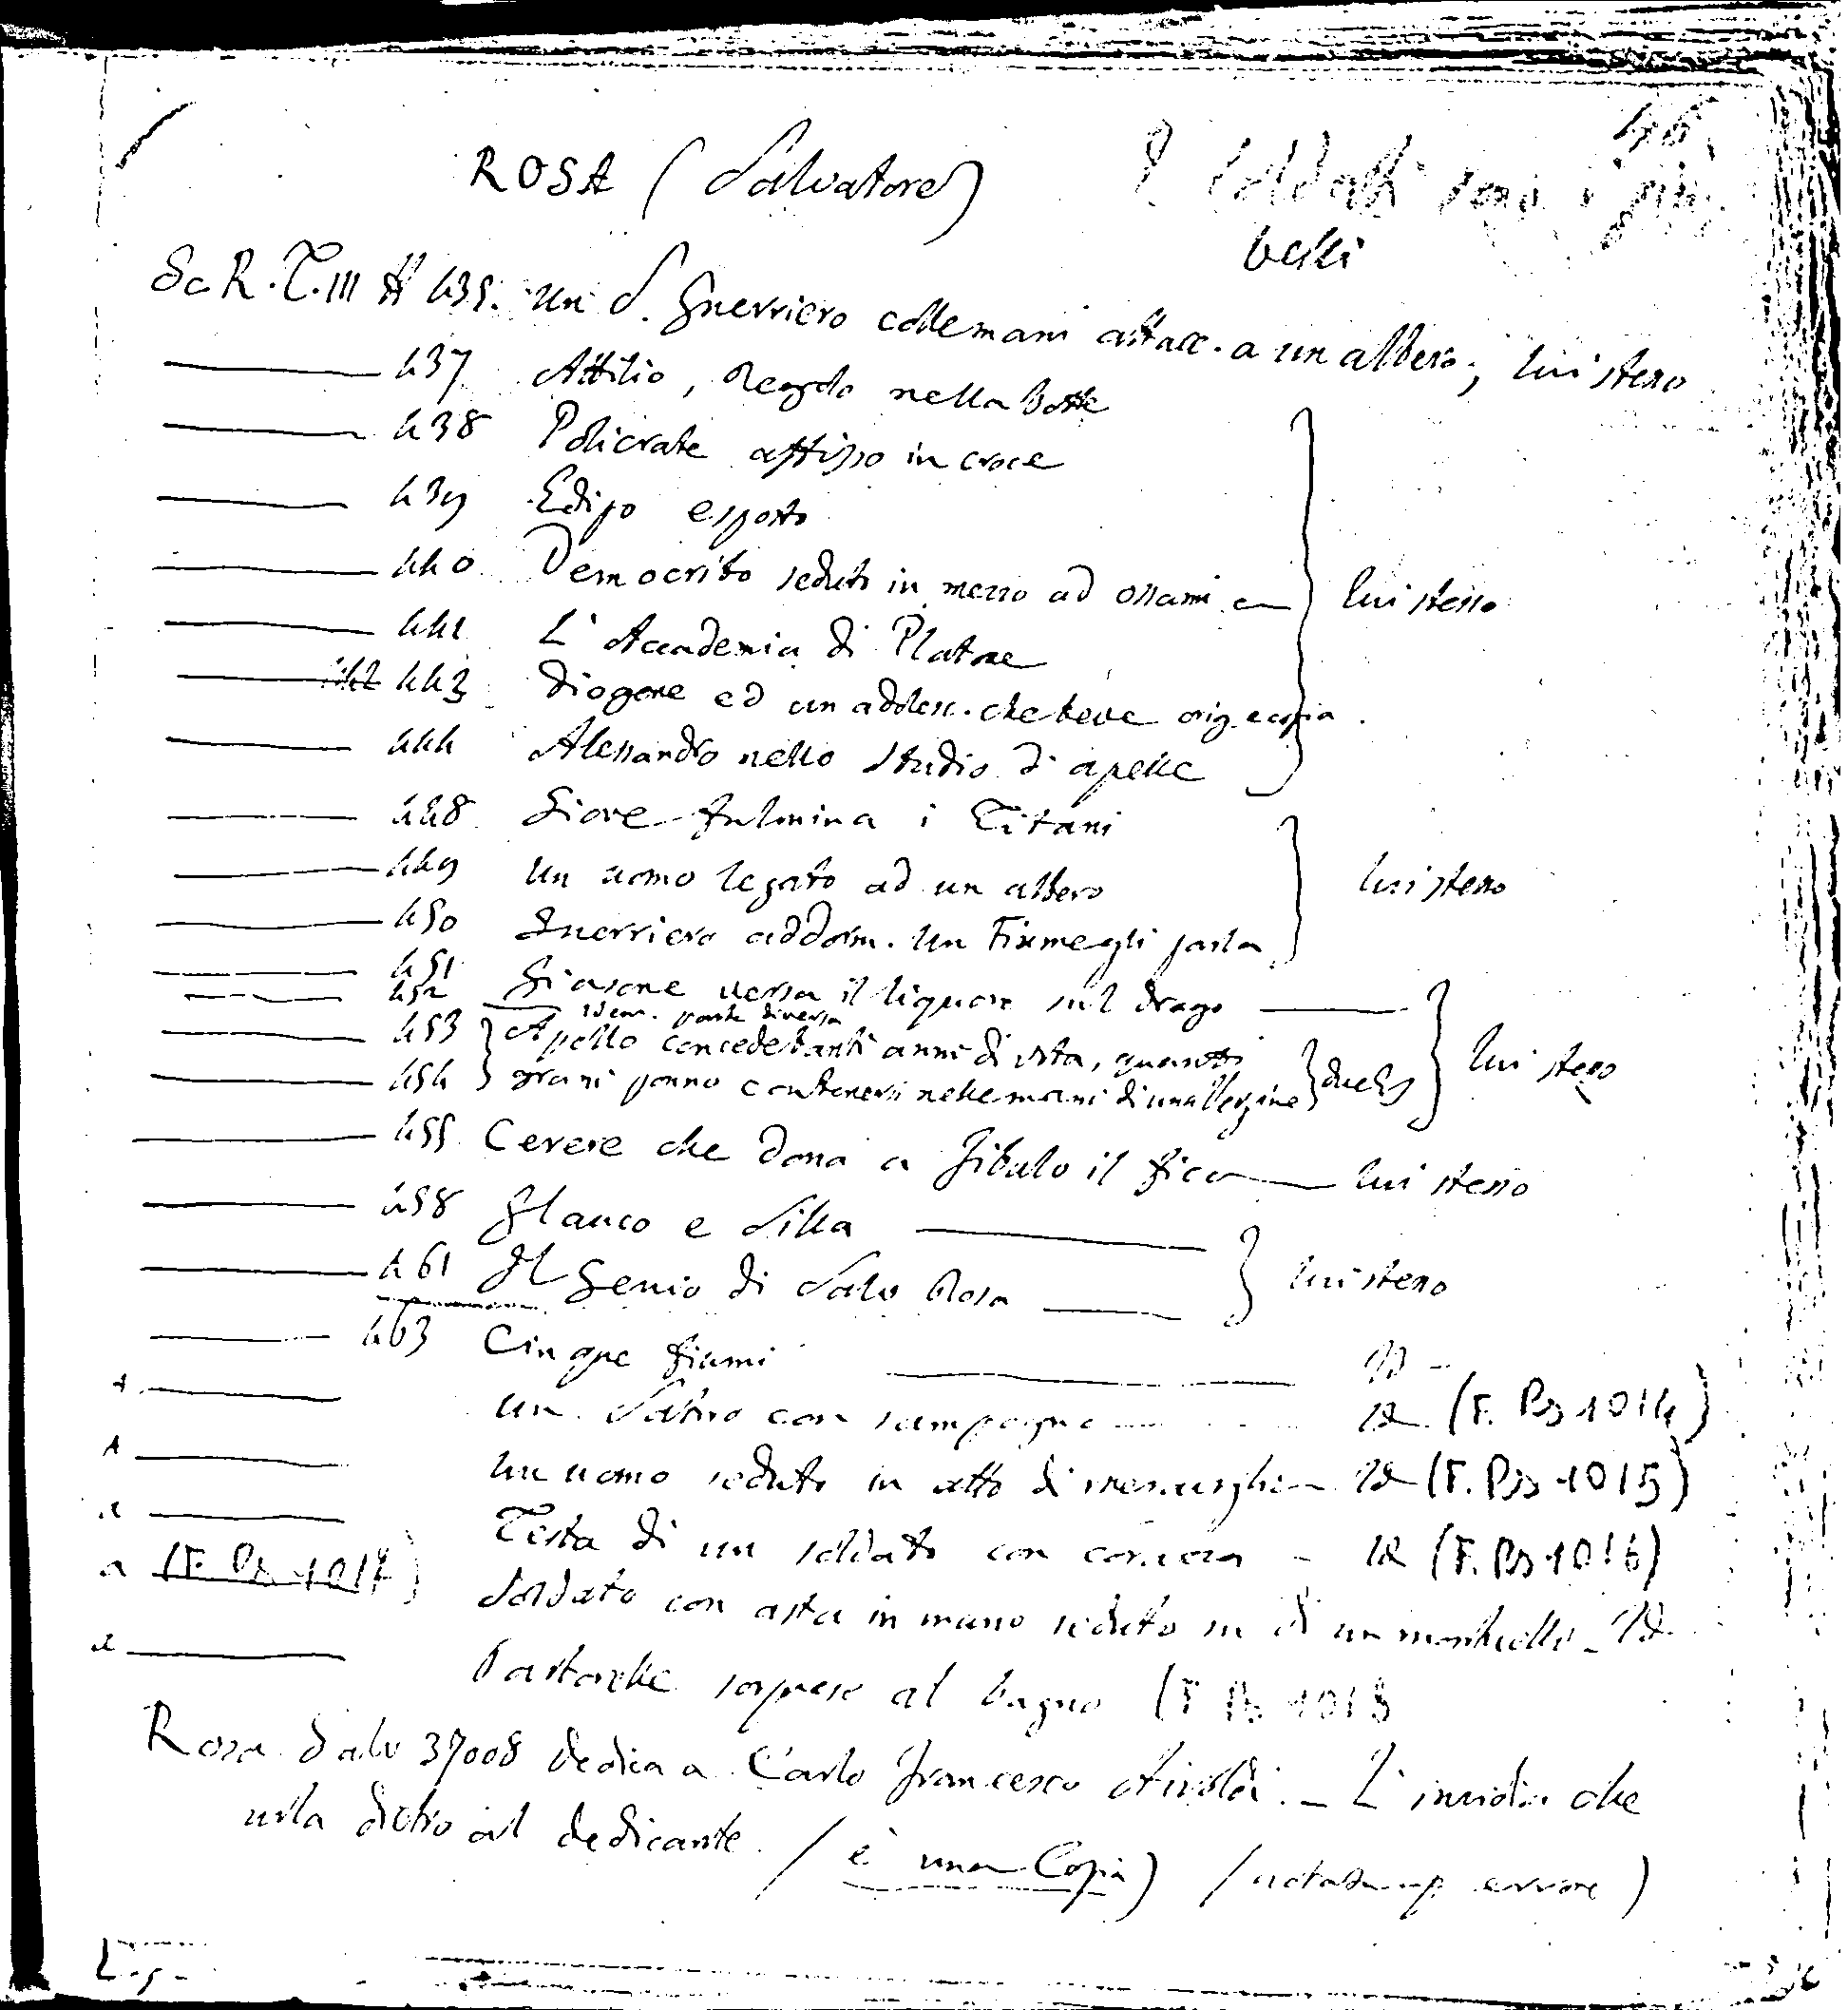 46
ROSA (Salvatore)
I Soldati sono i più
belli
Sc R. T. III A 435. un S. Guerriero colle mani attacc. a un albero; lui stesso
437 Attilio, Regolo nella botte
438 Policrate affisso in croce
439 Edipo esposto
440 Democrito seduto in mezzo ad ossami
lui stesso
441 L'Accademia di Platone
442 443 Diogene ed un adolesc. che beve orig e copia.
444 Alessandro nello studio di apelle
448 Giove fulmina i Titani
449 un uomo legato ad un albero
lui stesso
450 Guerriero addorm. un Fiume gli parla
451 Giasone versa il liquore sul drago
452 Idem. parte diversa
453 Apollo concede tanti anni di vita, quanti
454 grani ponno contenersi nelle mani di una Vergine
lui stesso
455 Cerere che dona a Fitalo il fico lui stesso
458 Glauco e Silla
461 Il Genio di Salv Rosa
lui stesso
463 Cinque fiumi
un Satiro con sampogna Id (F. Bs 1014)
un uomo seduto in atto di Id (F. Bs 1015)
Testa di un soldato con corazza - Id (F. Bs 1016)
a (F. Bs 1017) Soldato con asta in mano seduto su di un monticello - Id
Pastorelle sorprese al bagno (F Bs 1018
Rosa Salv 37008 dedica a Carlo Francesco Airoldi. - L'invidia che
urla dietro al dedicante. (è una Copia) errore)